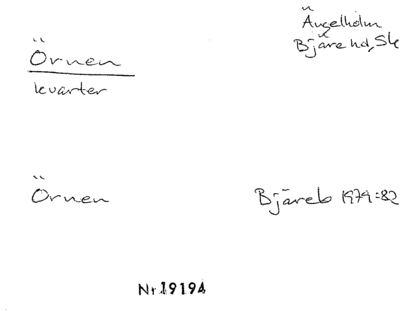 Örnen
Ängelholm
Bjäre hd, Sk
kvarter
Örnen
Bjäreb 1974:82
Nr 19194